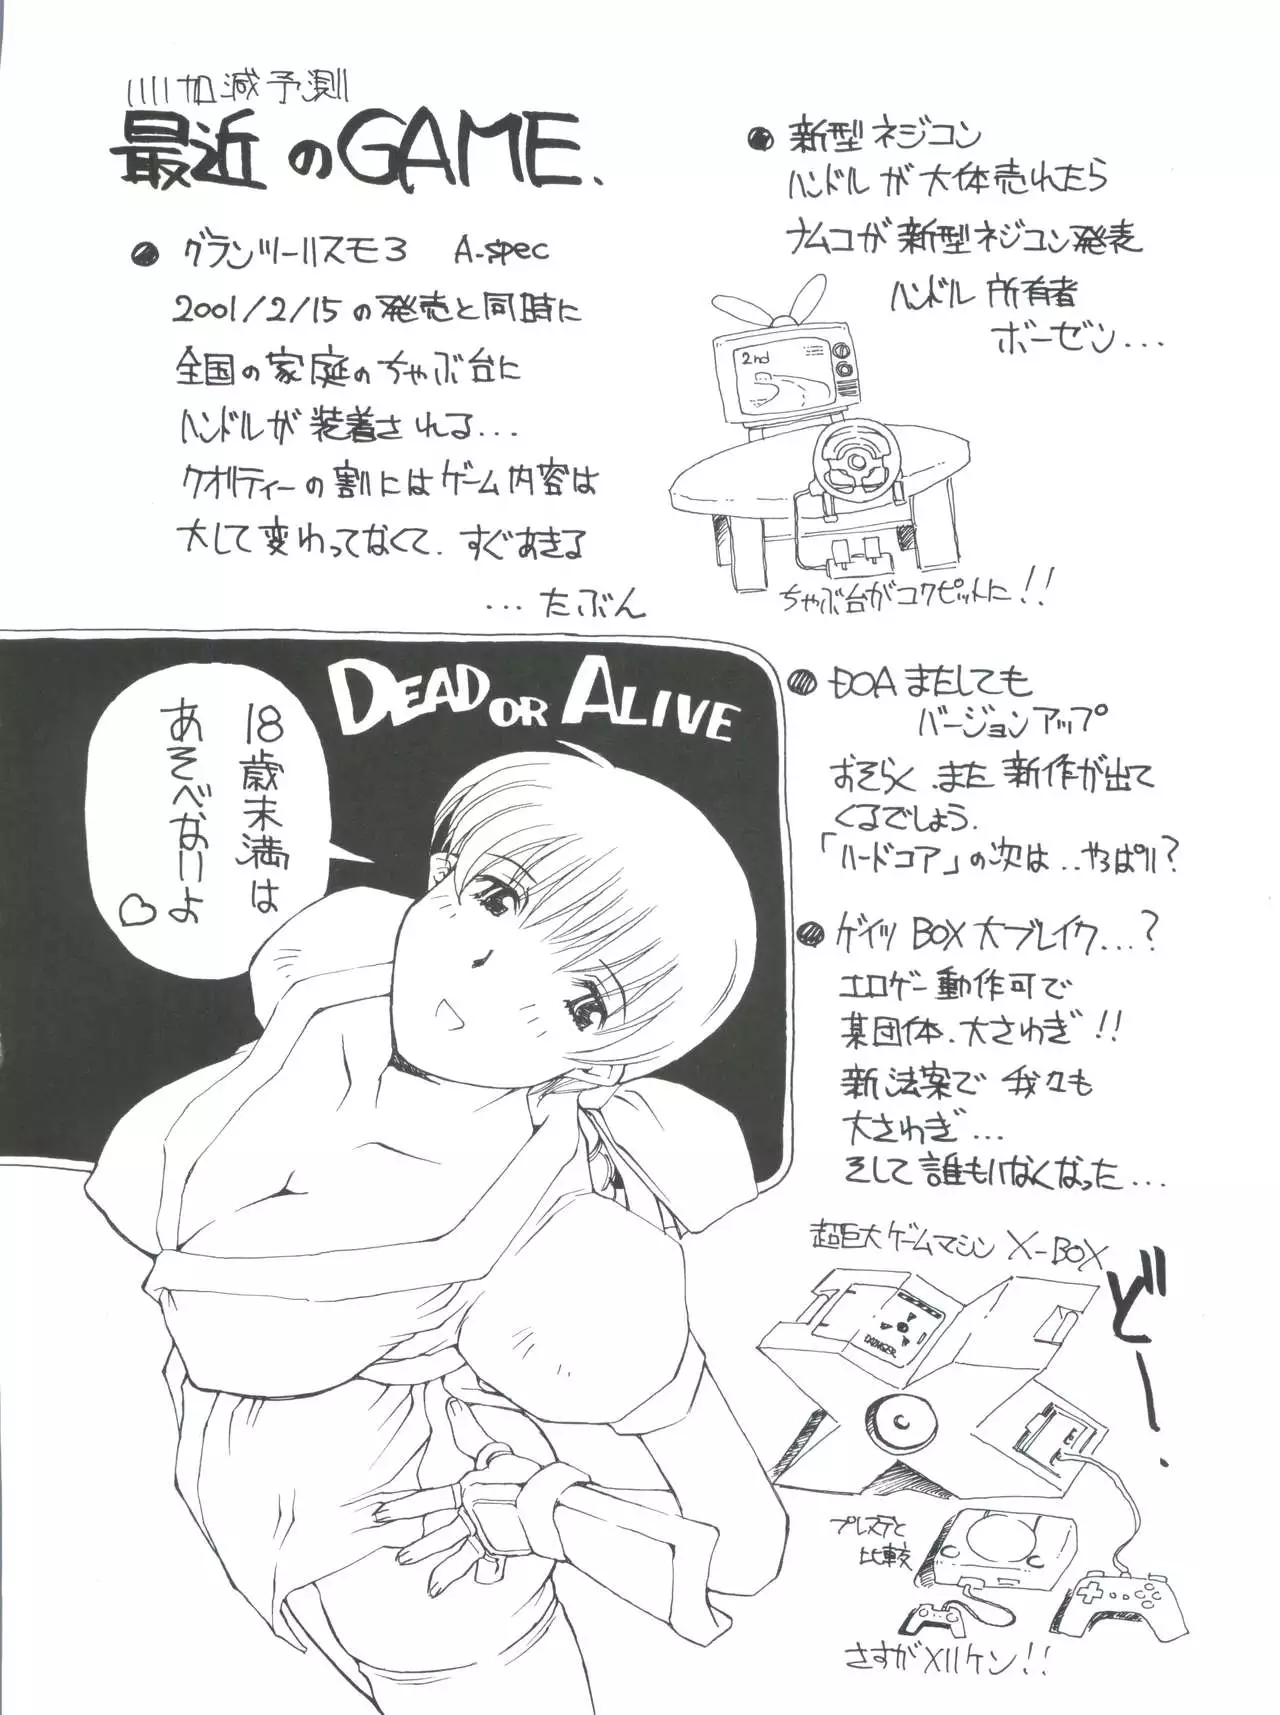 いいかげん予測
最近のGAME.
● グランツーリスモ3 A-spec
2001/2/15の発売と同時に
全国の家庭のちゃぶ台に
ハンドルが装着される...
クオリティーの割にはゲーム内容は
大して変わってなくて、すぐあきる
...たぶん
● 新型ネジコン
ハンドルが大体売れたら
ナムコが新型ネジコン発表
ハンドル所有者
ボーゼン...
2nd
ちゃぶ台がコクピットに!!
DEAD OR ALIVE
18歳未満は
あそべないよ♡
● DOAまたしても
バージョンアップ
おそらく、また新作が出て
くるでしょう.
「ハードコア」の次は...やっぱり?
● ゲイツBOX大ブレイク...?
エロゲー動作可で
某団体、大さわぎ!!
新法案で我々も
大さわぎ...
そして誰もいなくなった...
超巨大ゲームマシン X-BOX
どーー.
DAINGER
プレステと
比較
さすがメリケン!!